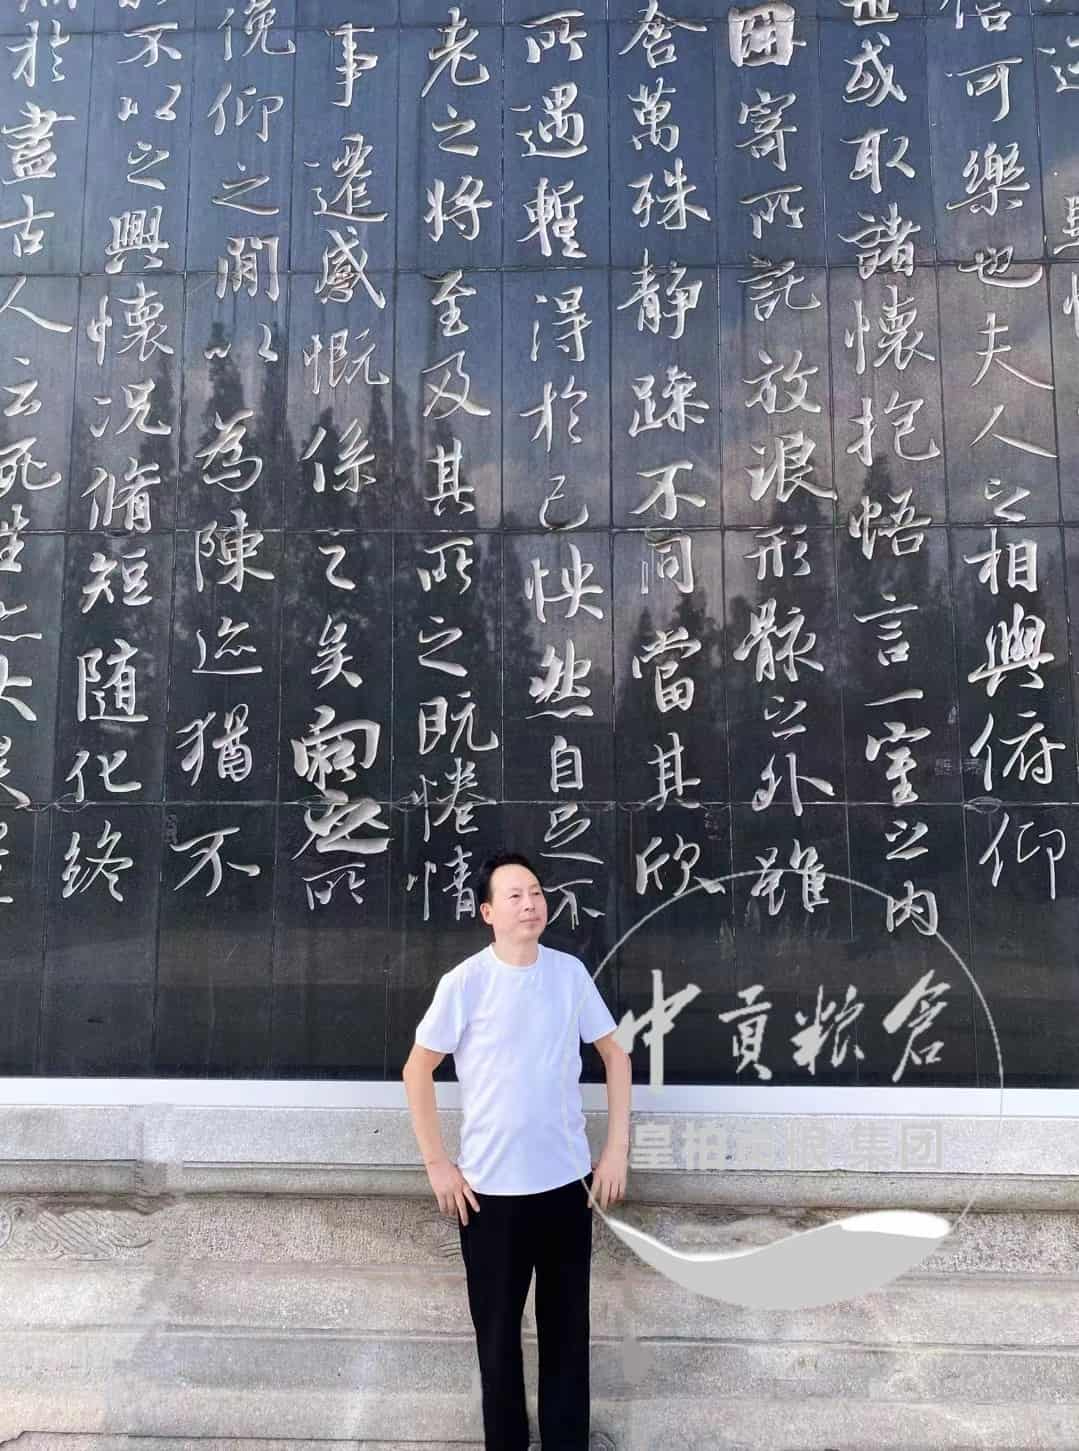 信可樂也夫人之相與俯仰
世或取諸懷抱悟言一室之內
因寄所託放浪形骸之外雖
舍萬殊静躁不同當其欣
所遇蹔得於己怏然自足不
老之將至及其所之既惓情
事遷感慨係之矣向之所
俛仰之閒以為陳迹猶不
不以之興懷况脩短随化终
於盡古人云死生亦大矣
中貢粮倉
集团